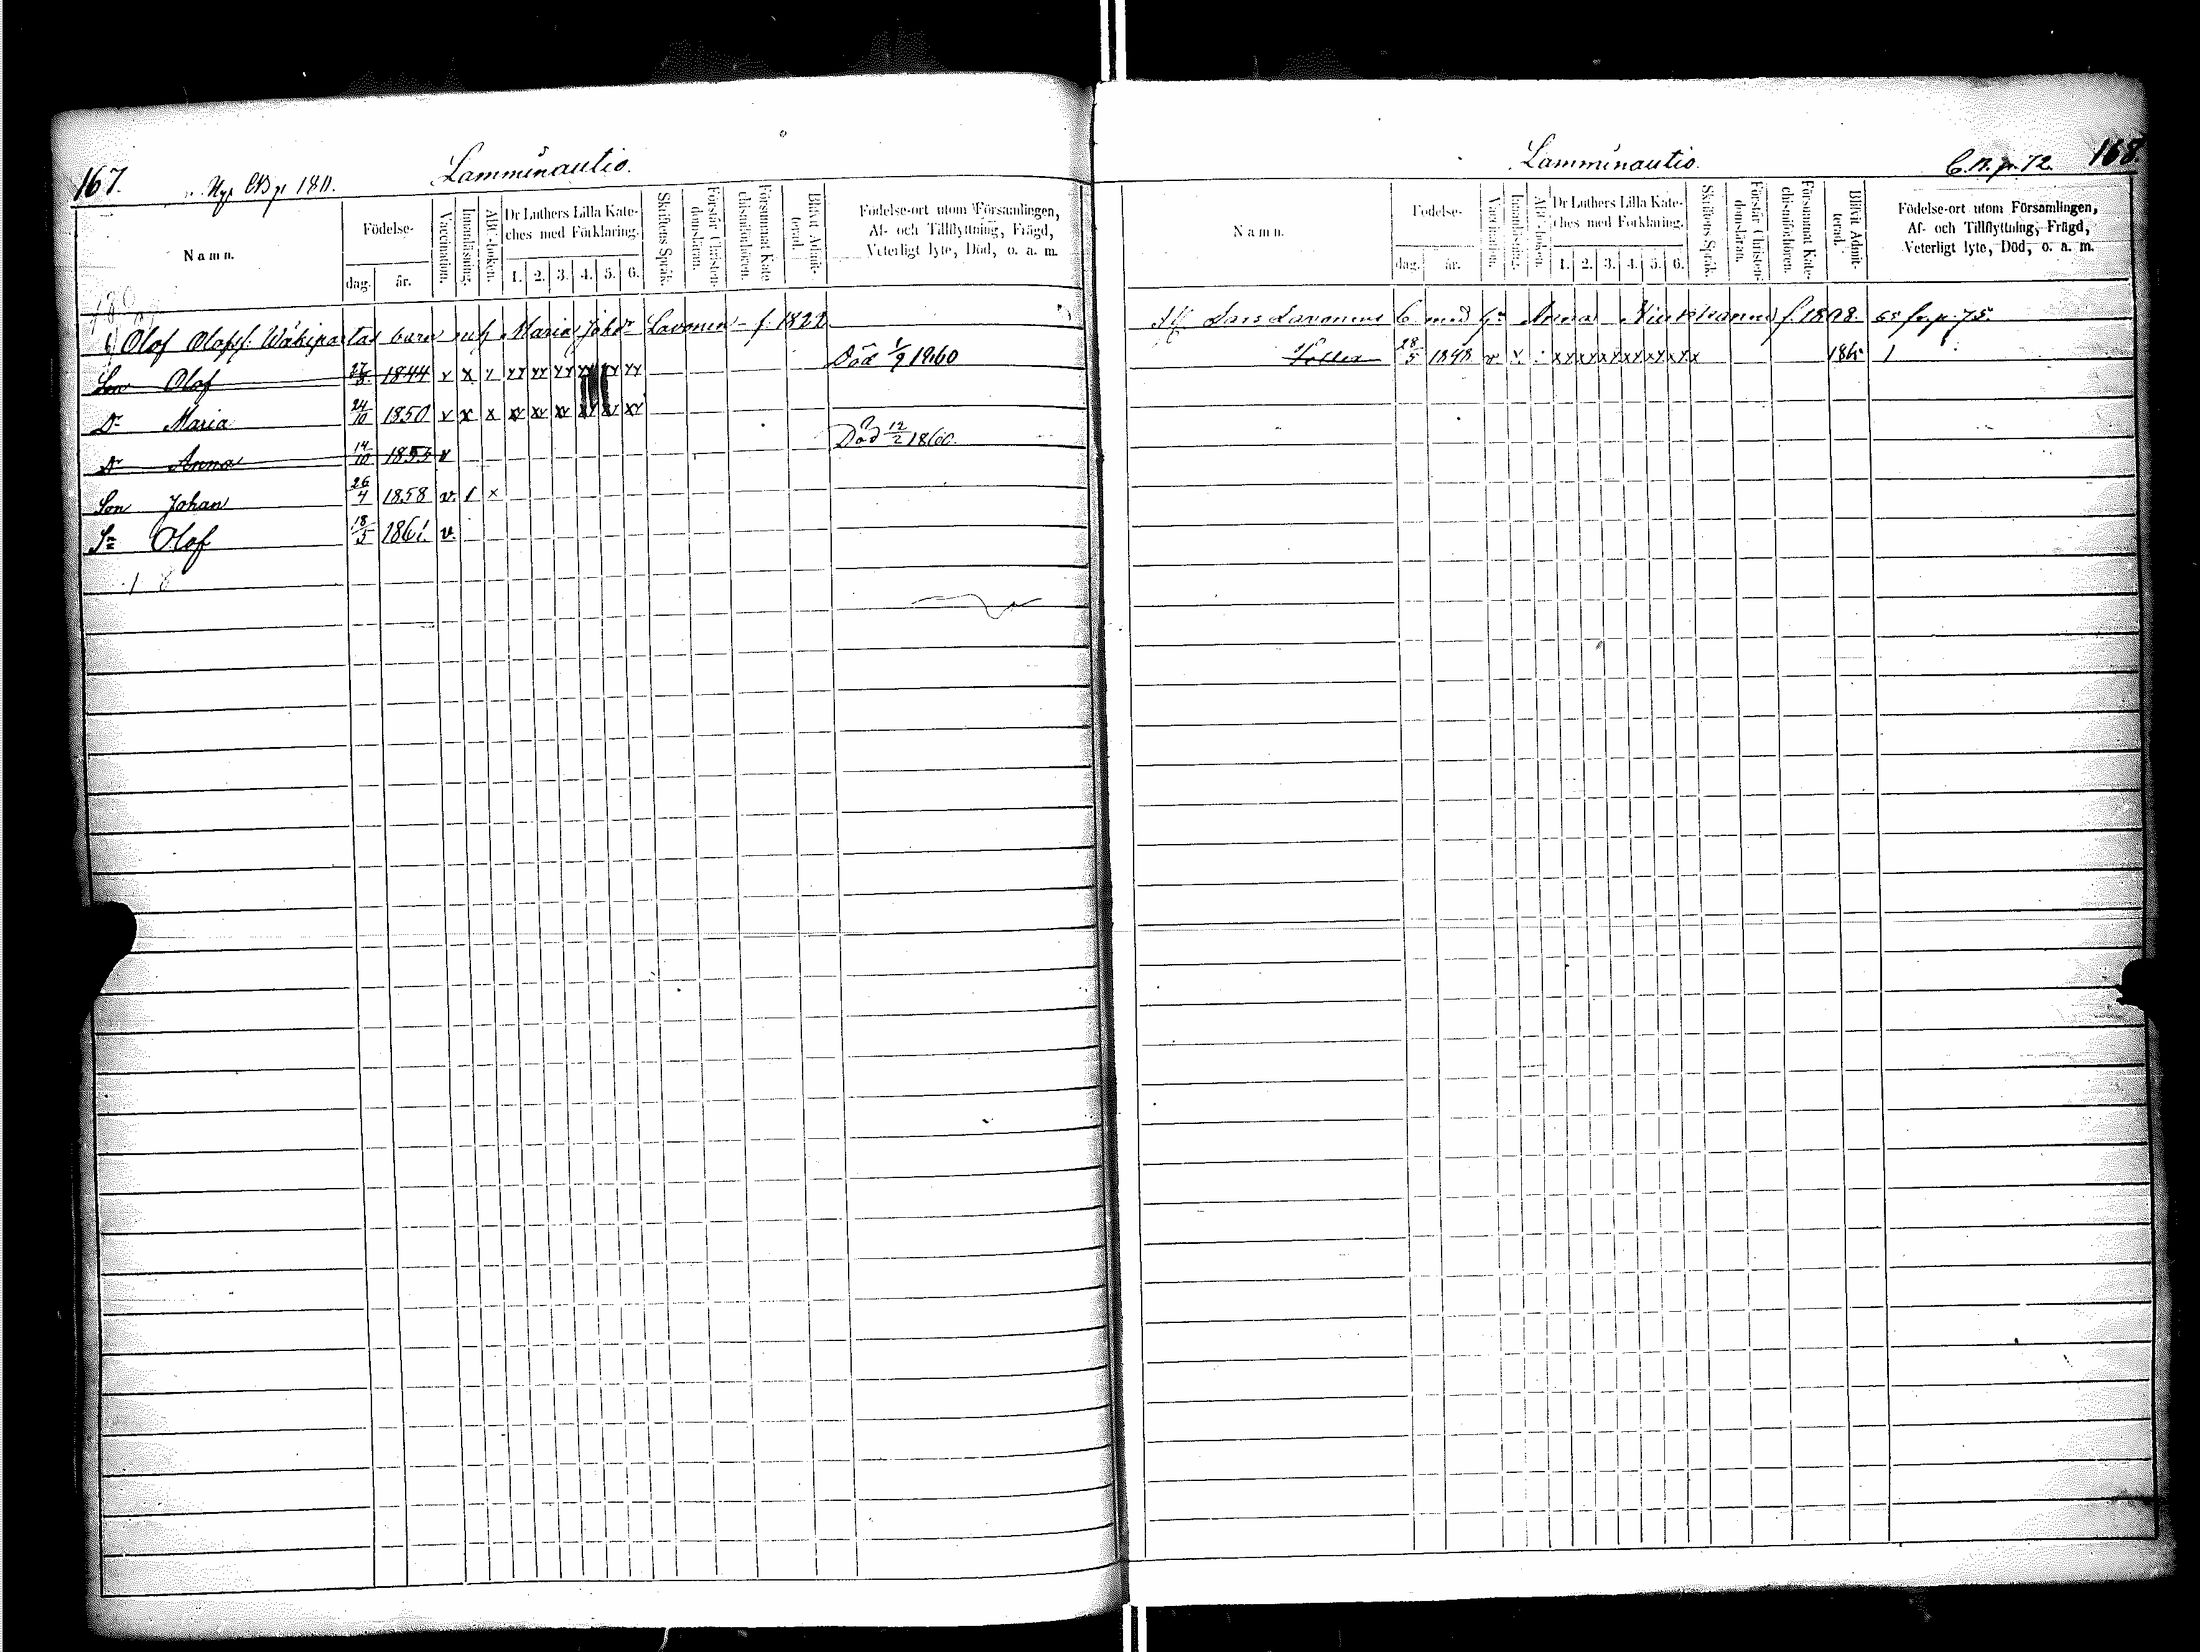 167. Nya CB p 180. Lamminautio.
Namn. Födelse- dag. år. Vaccination. Innanläsning. ABC-boken. Dr Luthers Lilla Kateches med Förklaring. 1. 2. 3. 4. 5. 6. Skriftens Språk. Förstår Christendomsläran. Försummat Katechismiförhören. Blifvit Admitterad. Födelse-ort utom Församlingen, Af- och Tillflyttning, Frägd, Veterligt lyte, Död, o. a. m.
Olof Olofss. Wäkipartas barn m. h. Maria Johsdr Lavonen f. 1822
Son Olof 27/8 1844 v x x xx xx xx xx xx xx Död 1/9 1860
Dr Maria 24/10 1850 v x x xx xx xx xx xx xx
Dr Anna 14/10 1855 v Död 12/2 1860.
Son Johan 26/4 1858 v. x
Sn Olof 18/5 1861. v.
Lamminautio. C.B. p. 72. 168.
Namn. Födelse- dag. år. Vaccination. Innanläsning. ABC-boken. Dr Luthers Lilla Kateches med Förklaring. 1. 2. 3. 4. 5. 6. Skriftens Språk. Förstår Christendomsläran. Försummat Katechismiförhören. Blifvit Admitterad. Födelse-ort utom Församlingen, Af- och Tillflyttning, Frägd, Veterligt lyte, Död, o. a. m.
Lars Lavonens b med Anna f. 1808. p. 75.
28/5 1848 v x xx xx xx xx xx xx 1865